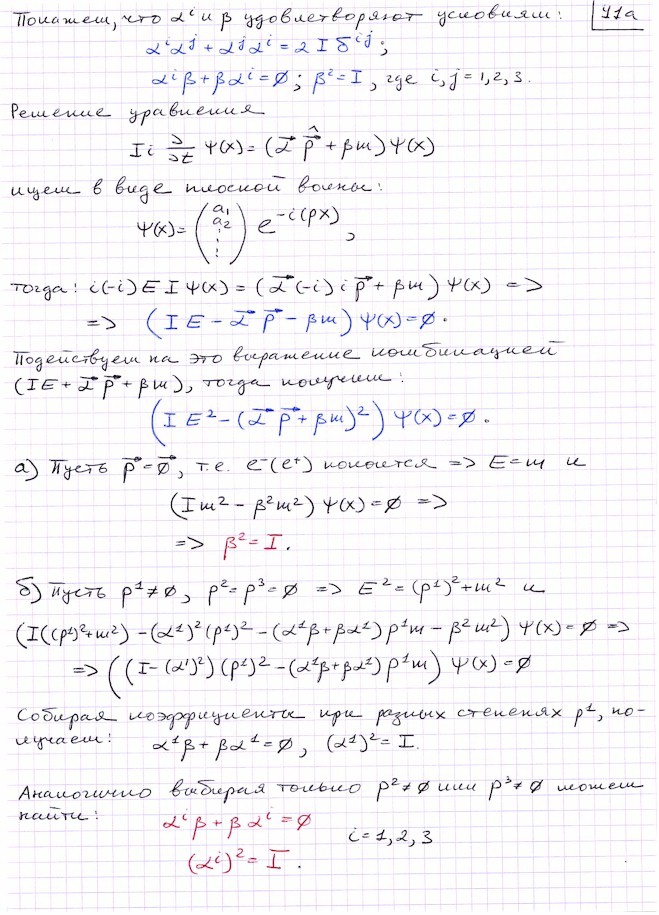 Покажем, что αⁱ и β удовлетворяют условиям: 11а
αⁱαʲ + αʲαⁱ = 2 I δⁱʲ;
αⁱβ + βαⁱ = 0; β² = I, где i, j = 1, 2, 3.
Решение уравнения
I i ∂/∂t Ψ(x) = (α⃗ p⃗̂ + βm) Ψ(x)
ищем в виде плоской волны:
Ψ(x) = (a₁ a₂ ⋮) e^{-i(px)},
тогда: i(-i) E I Ψ(x) = (α⃗ (-i) i p⃗ + βm) Ψ(x) =>
=> (I E - α⃗ p⃗ - βm) Ψ(x) = 0.
Подействуем на это выражение комбинацией
(IE + α⃗ p⃗ + βm), тогда получим:
(I E² - (α⃗ p⃗ + βm)²) Ψ(x) = 0.
а) Пусть p⃗ = 0⃗, т.е. e⁻(e⁺) покоится => E = m и
(Im² - β²m²) Ψ(x) = 0 =>
=> β² = I.
б) Пусть p¹ ≠ 0, p² = p³ = 0 => E² = (p¹)² + m² и
(I((p¹)² + m²) - (α¹)² (p¹)² - (α¹β + βα¹) p¹m - β²m²) Ψ(x) = 0 =>
=> ((I - (α¹)²) (p¹)² - (α¹β + βα¹) p¹m) Ψ(x) = 0
Собирая коэффициенты при разных степенях p¹, по-
лучаем: α¹β + βα¹ = 0, (α¹)² = I.
Аналогично выбирая только p² ≠ 0 или p³ ≠ 0 можем
найти: αⁱβ + βαⁱ = 0
i = 1, 2, 3
(αⁱ)² = I.